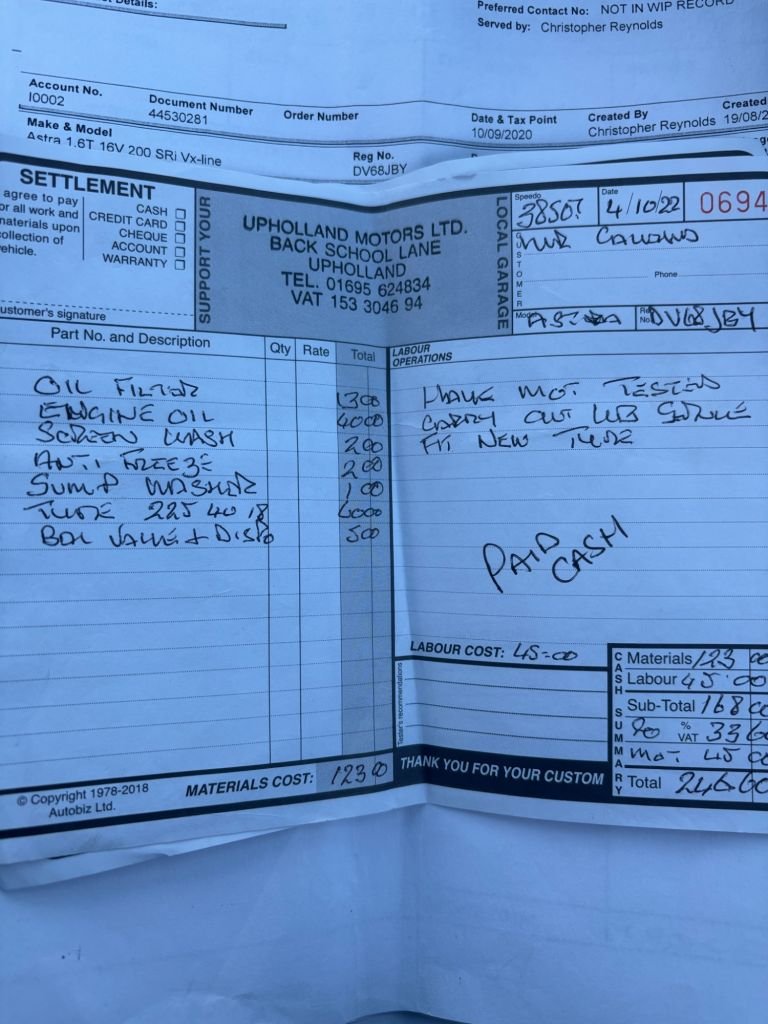 Details:
Preferred Contact No: NOT IN WIP RECORD
Served by: Christopher Reynolds
Account No.
I0002
Document Number
44530281
Order Number
Date & Tax Point
10/09/2020
Created By
Christopher Reynolds
Created
19/08/2
Make & Model
Astra 1.6T 16V 200 SRi Vx-line
Reg No.
DV68JBY
SETTLEMENT
agree to pay
or all work and
materials upon
collection of
vehicle.
CASH
CREDIT CARD
CHEQUE
ACCOUNT
WARRANTY
Customer's signature
SUPPORT YOUR
UPHOLLAND MOTORS LTD.
BACK SCHOOL LANE
UPHOLLAND
TEL. 01695 624834
VAT 153 3046 94
LOCAL GARAGE
Speedo
38507
Date
4/10/22
0694
CUSTOMER
MR
Phone
Model
ASTRA
Reg No.
DV68JBY
Part No. and Description Qty Rate Total
OIL FILTER 1300
ENGINE OIL 4000
SCREEN WASH 200
ANTI FREEZE 200
SUMP WASHER 100
TYRE 225 40 18 6000
BAL VALVE + DISPO 500
MATERIALS COST: 123 00
© Copyright 1978-2018
Autobiz Ltd.
LABOUR
OPERATIONS
HAVE MOT TESTED
CARRY OUT LUB SERVICE
FIT NEW TYRE
PAID
CASH
LABOUR COST: 45-00
Tester's recommendations
THANK YOU FOR YOUR CUSTOM
CASH SUMMARY
Materials 123 00
Labour 45 00
Sub-Total 168 00
20 % VAT 33 60
MOT 45 00
Total 246 60